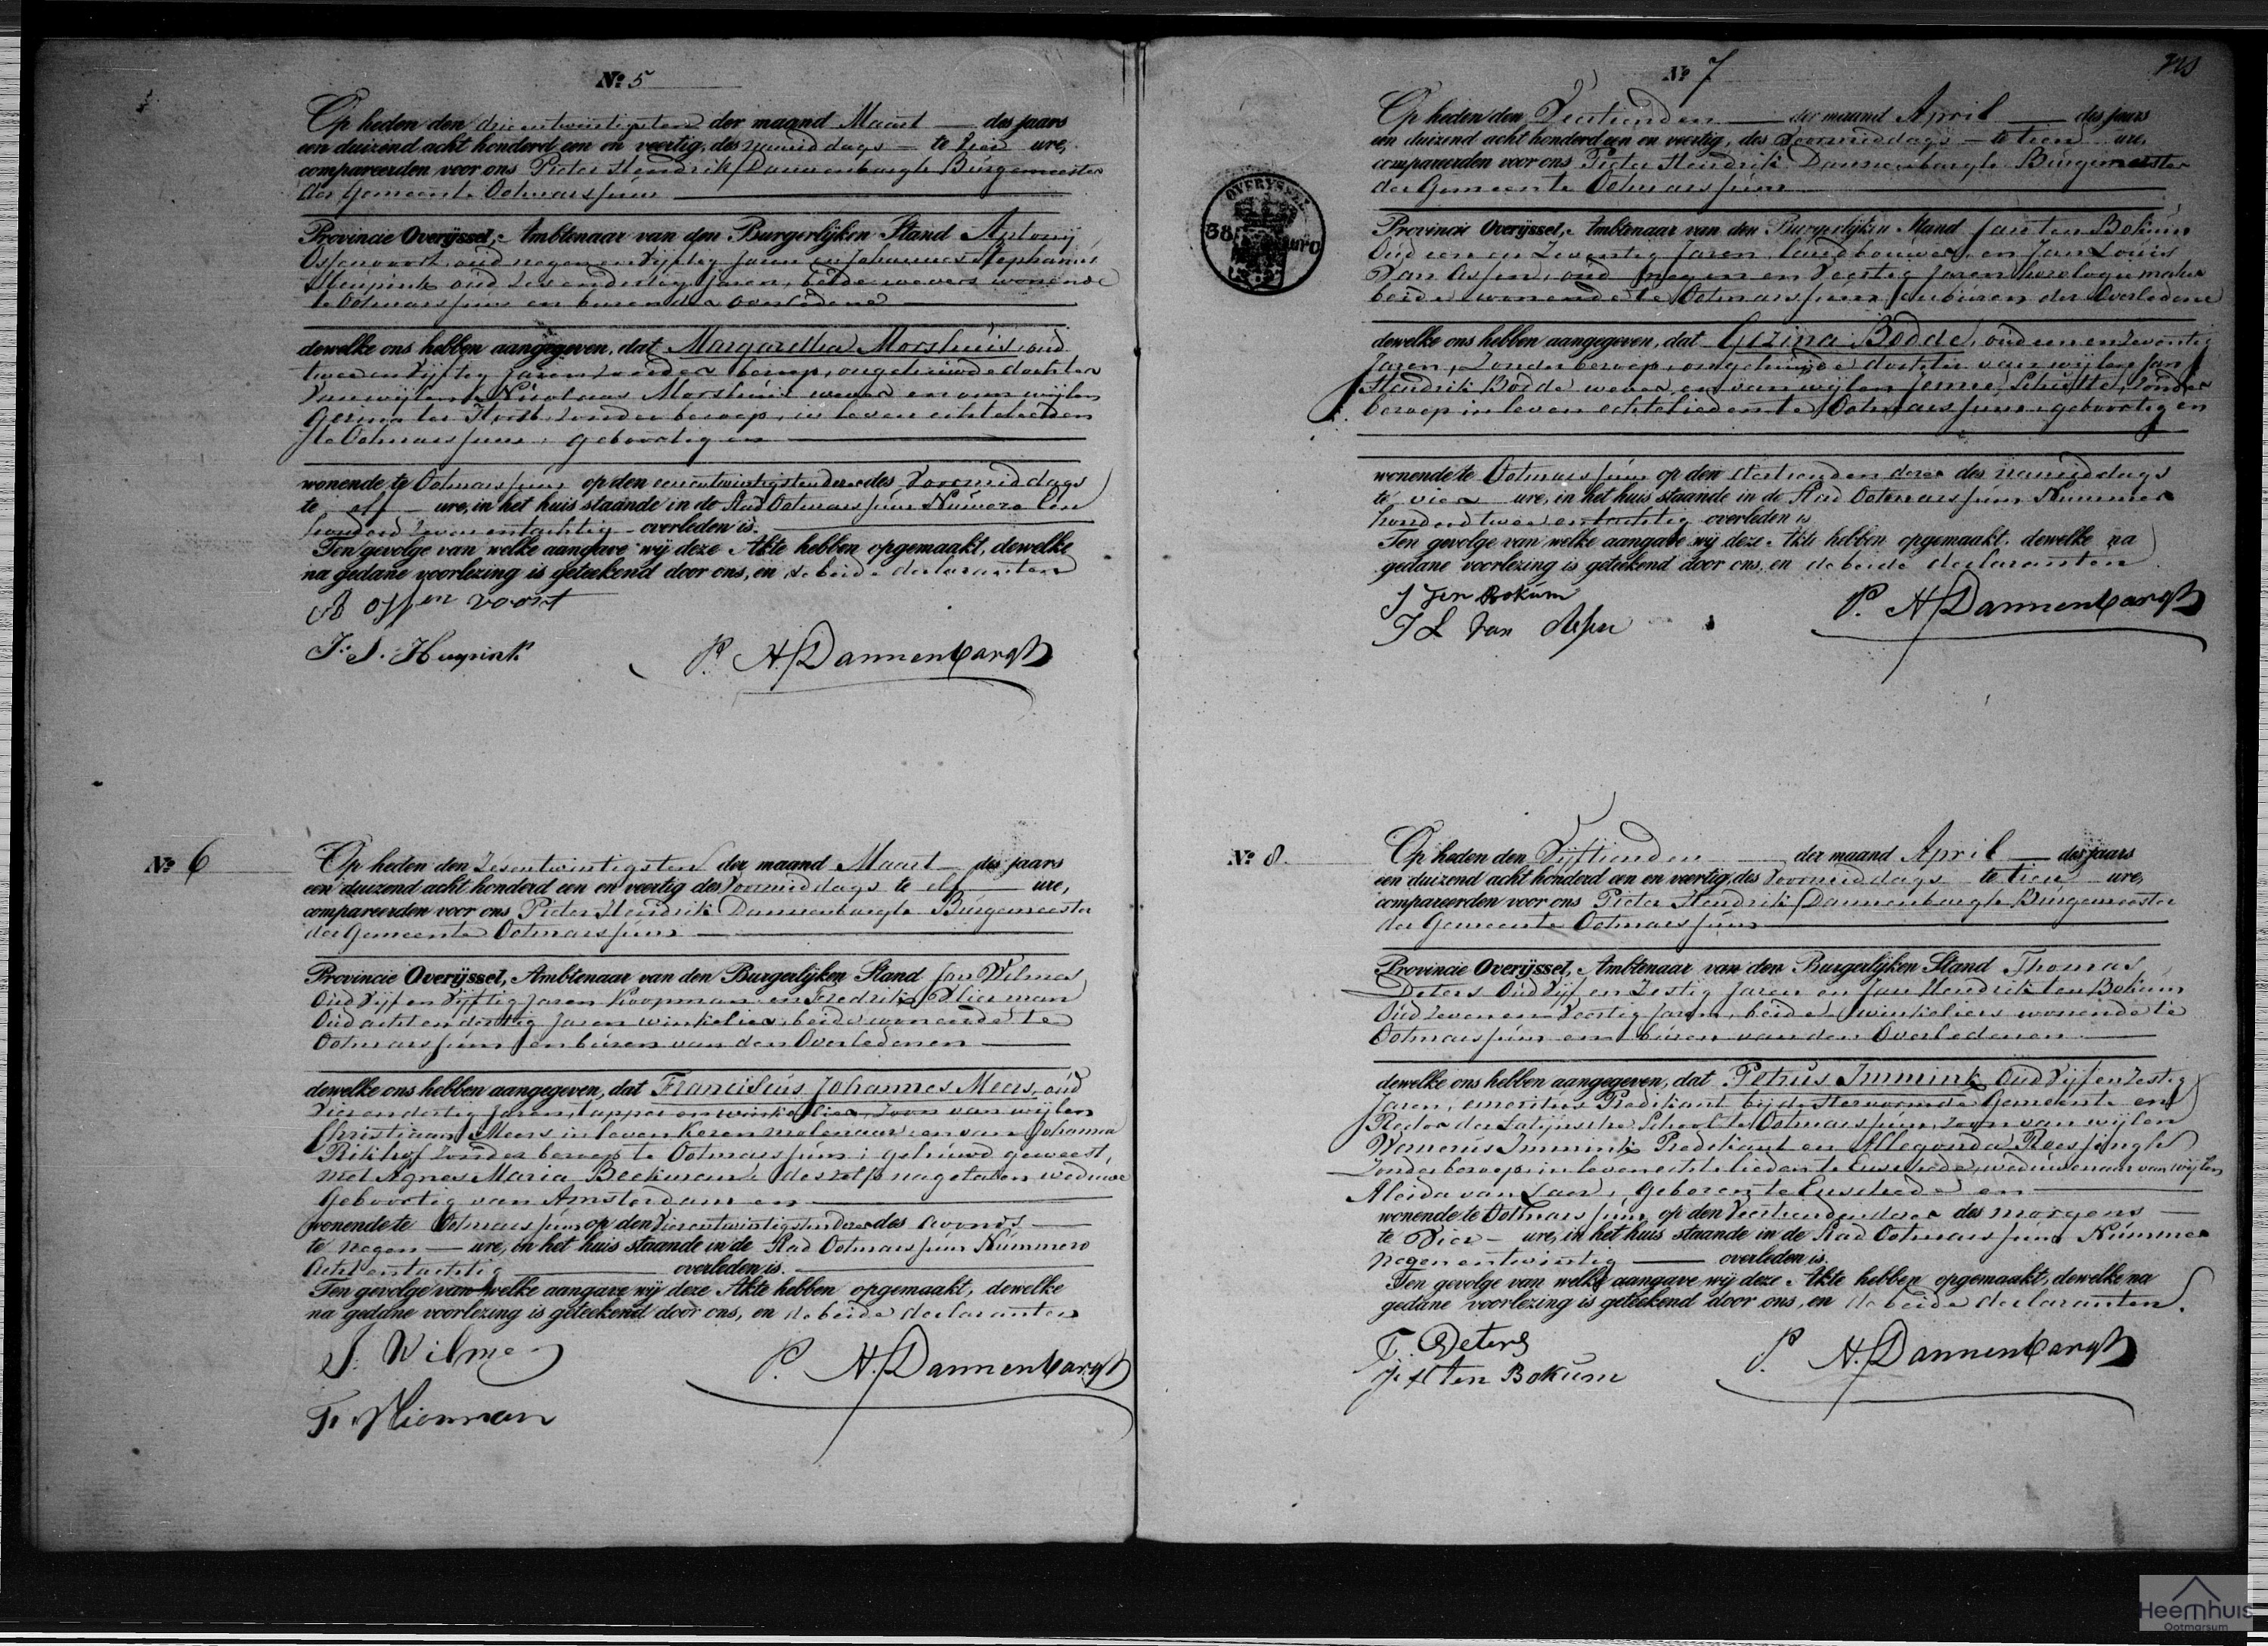 No 5
Op heden den drieentwintigsten der maand Maart des jaars
een duizend acht honderd een en veertig, des namiddags te vier ure,
compareerden voor ons Pieter Hendrik Dannenbargh Burgemeester
der Gemeente Ootmarssum
Provincie Overijssel, Ambtenaar van den Burgerlijken Stand Antony
Ossenvoort, oud negen en vijftig Jaren en Johannes Stephanus
Heupink oud zes en dertig Jaren, beide wevers wonende
te Ootmarssum en buren der overledene
dewelke ons hebben aangegeven, dat Margaretha Morshuis, oud
twee en vijftig Jaren zonder beroep, ongehuwde dochter
van wijlen Nicolaas Morshuis wever en van wijlen
Gerina ter Horst zonder beroep, in leven echtelieden
te Ootmarssum, geboortig en
wonende te Ootmarssum op den eenentwintigsten dezer des voormiddags
te elf ure, in het huis staande in de Stad Ootmarssum Numero een
honderd zeven en tachtig overleden is.
Ten gevolge van welke aangave wij deze Akte hebben opgemaakt, dewelke
na gedane voorlezing is geteekend door ons, en de beide declaranten
A Ossenvoort
J. S. Huypink
P. H. Dannenbargh
No 6
Op heden den zesentwintigsten der maand Maart des jaars
een duizend acht honderd een en veertig des voormiddags te elf ure,
compareerden voor ons Pieter Hendrik Dannenbargh Burgemeester
der Gemeente Ootmarssum
Provincie Overijssel, Ambtenaar van den Burgerlijken Stand Jan Wilmes
Oud vijf en vijftig Jaren Koopman en Fredrik Vlierman
Oud acht en dertig Jaren winkelier, beide wonende te
Ootmarssum en buren van den Overledenen
dewelke ons hebben aangegeven, dat Franciscus Johannes Meers, oud
vier en dertig Jaren, tapper en winkelier, zoon van wijlen
Christiaan Meers in leven Koren molenaar en van Johanna
Rikhof zonder beroep te Ootmarssum; gehuwd geweest,
met Agnes Maria Beekman, deszelfs nagelaten weduwe
Geboortig van Amsterdam en
wonende te Ootmarssum op den vierentwintigsten dezer des avonds
te negen ure, in het huis staande in de Stad Ootmarssum Nummero
Acht en tachtig overleden is.
Ten gevolge van welke aangave wij deze Akte hebben opgemaakt, dewelke
na gedane voorlezing is geteekend door ons, en de beide declaranten
J. Wilmes
F. Vlierman
P. H. Dannenbargh
No 7
Op heden den Veertienden der maand April des jaars
een duizend acht honderd een en veertig, des voormiddags te tien ure,
compareerden voor ons Pieter Hendrik Dannenbargh Burgemeester
der Gemeente Ootmarssum
OVERYSSEL
Provincie Overijssel, Ambtenaar van den Burgerlijken Stand Jan ten Bokum
Oud een en zeventig Jaren landbouwer, en Jan Louis
van Assen, oud negen en veertig Jaren horologiemaker
beide wonende te Ootmarssum en buren der Overledene
dewelke ons hebben aangegeven, dat Gezina Bodde, oud een en zeventig
Jaren, zonder beroep, ongehuwde dochter van wijlen Jan
Hendrik Bodde wever, en van wijlen Jenne Schutte, zonder
beroep in leven echtelieden te Ootmarssum, geboortig en
wonende te Ootmarssum op den dertienden dezer des namiddags
te vier ure, in het huis staande in de Stad Ootmarssum Nummer
honderd twee en tachtig overleden is
Ten gevolge van welke aangave wij deze Akte hebben opgemaakt, dewelke na
gedane voorlezing is geteekend door ons, en de beide declaranten
J ten Bokum
J L van Assen
P. H. Dannenbargh
No 8
Op heden den Vijftienden der maand April des jaars
een duizend acht honderd een en veertig, des voormiddags te tien ure,
compareerden voor ons Pieter Hendrik Dannenbargh Burgemeester
der Gemeente Ootmarssum
Provincie Overijssel, Ambtenaar van den Burgerlijken Stand Thomas
Deters Oud vijf en zestig Jaren en Jan Hendrik ten Bokum
Oud zeven en veertig Jaren, beide winkeliers wonende te
Ootmarssum en buren van den Overledenen
dewelke ons hebben aangegeven, dat Petrus Immink Oud vijf en zestig
Jaren, emeritus Predikant bij de Hervormde Gemeente en
Rector der Latijnsche School te Ootmarssum, zoon van wijlen
Wernerus Immink Predikant en Allegonda Roessingh
zonder beroep in leven echtelieden te Enschede, weduwenaar van wijlen
Aleida van Laer, Geboren te Enschede en
wonende te Ootmarssum op den veertienden dezer des morgens
te vier ure, in het huis staande in de Stad Ootmarssum Nummer
negen en twintig overleden is.
Ten gevolge van welke aangave wij deze Akte hebben opgemaakt, dewelke na
gedane voorlezing is geteekend door ons, en de beide declaranten.
T. Deters
J H ten Bokum
P. H. Dannenbargh
Heemhuis
Ootmarsum